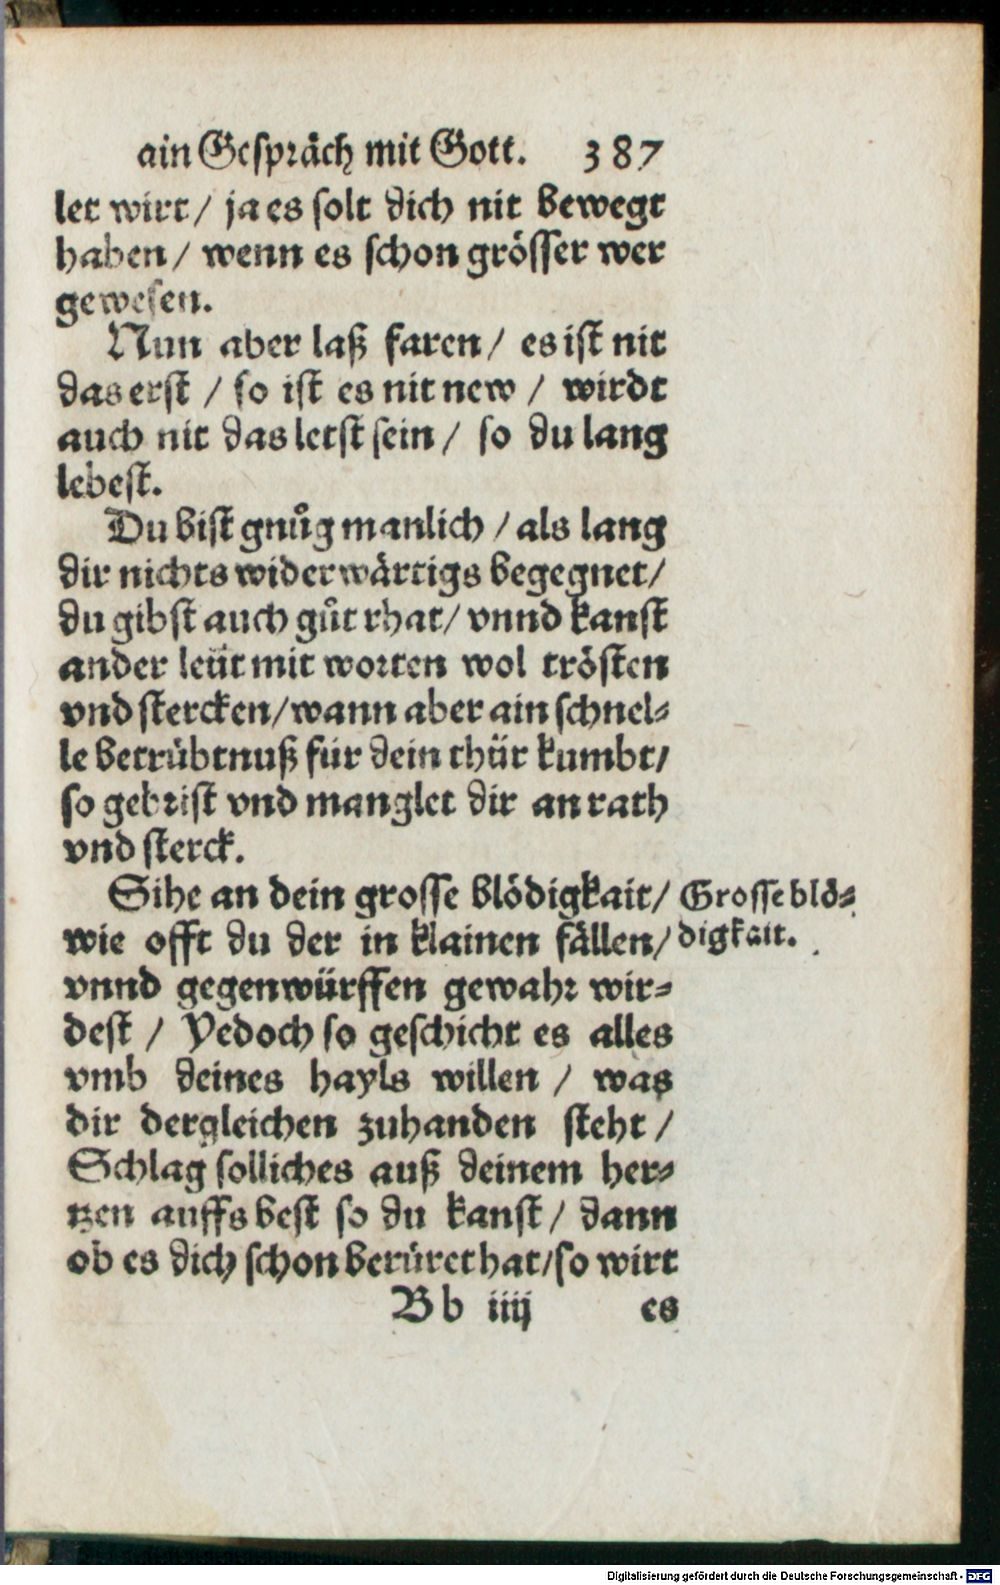 ain Gespräch mit Gott. 387
let wirt / ja es solt dich nit bewegt
haben / wenn es schon grösser wer
gewesen.
Nun aber laß faren / es ist nit
das erst / so ist es nit new / wirdt
auch nit das letst sein / so du lang
lebest.
Du bist gnůg manlich / als lang
dir nichts widerwärtigs begegnet /
du gibst auch gůt rhat / vnnd kanst
ander leüt mit worten wol trösten
vnd stercken / wann aber ain schnel-
le betrübtnuß für dein thür kumbt /
so gebrist vnd manglet dir an rath
vnd sterck.
Sihe an dein grosse blödigkait / Grosse blö-
wie offt du der in klainen fällen / digkait.
vnnd gegenwürffen gewahr wir-
dest / Yedoch so geschicht es alles
vmb deines hayls willen / was
dir dergleichen zuhanden steht /
Schlag solliches auß deinem her-
tzen auffs best so du kanst / dann
ob es dich schon berüret hat / so wirt
Bb iiij es
Digitalisierung gefördert durch die Deutsche Forschungsgemeinschaft - DFG